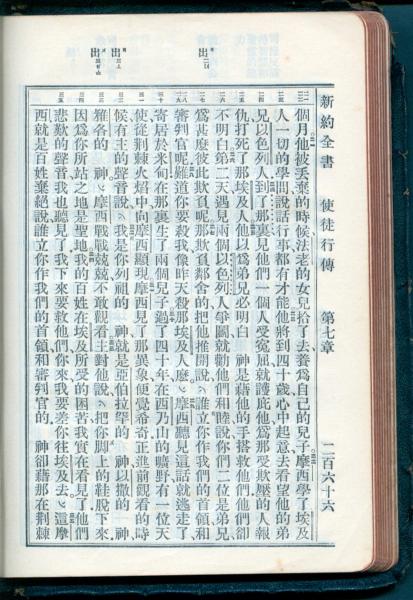 新約全書 使徒行傳 第七章 二百六十六
個月他被丟棄的時候法老的女兒拾了去養爲自己的兒子摩西學了埃及
人一切的學問說話行事都有才能他將到四十歲心中起意去看望他的弟
兄以色列人到了那裏見他們一個人受冤屈就護庇他爲那受欺壓的人報
仇打死了那埃及人他以爲弟兄必明白 神是藉他的手搭救他們他們卻
不明白第二天遇見兩個以色列人爭鬭就勸他們和睦說你們二位是弟兄
爲甚麼彼此欺負呢那欺負鄰舍的把他推開說誰立你作我們的首領和
審判官呢難道你要殺我像昨天殺那埃及人麼摩西聽見這話就逃走了
寄居於米甸在那裏生了兩個兒子過了四十年在西乃山的曠野有一位天
使從荊棘火熖中向摩西顯現摩西見了那異象便覺希奇正進前觀看的時
候有主的聲音說我是你列祖的 神就是亞伯拉罕的 神以撒的 神
雅各的 神摩西戰戰兢兢不敢觀看主對他說把你腳上的鞋脫下來
因爲你所站之地是聖地我的百姓在埃及所受的困苦我實在看見了他們
悲歎的聲音我也聽見了我下來要救他們你來我要差你往埃及去這摩
西就是百姓棄絕說誰立你作我們的首領和審判官的 神卻藉那在荊棘